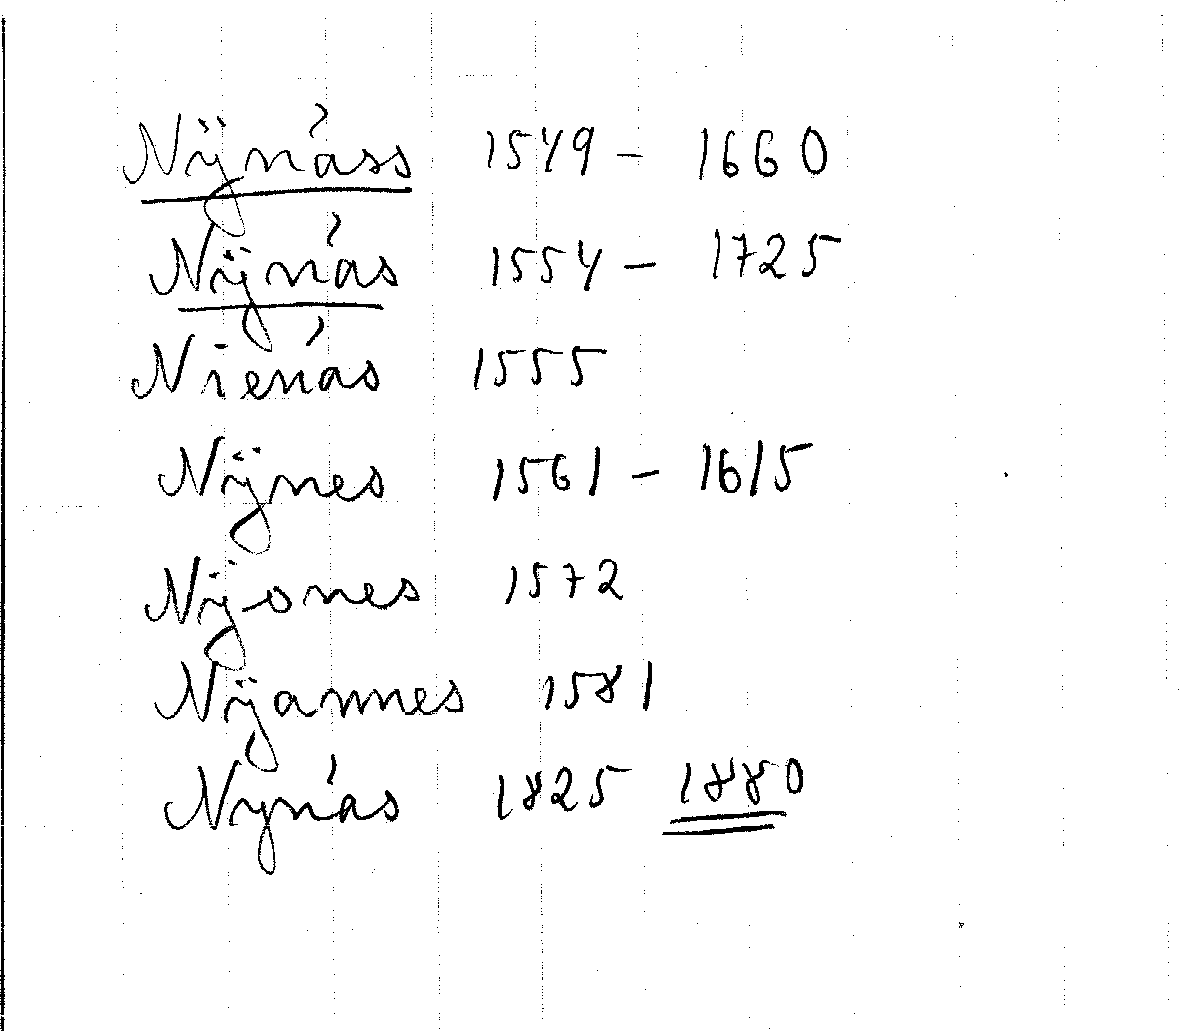 Nÿnäss 1549 – 1660
Nÿnäs 1554 – 1725
Nienäs 1555
Nÿnes 1561 – 1615
Nÿones 1572
Nÿannes 1581
Nynäs 1825 1880